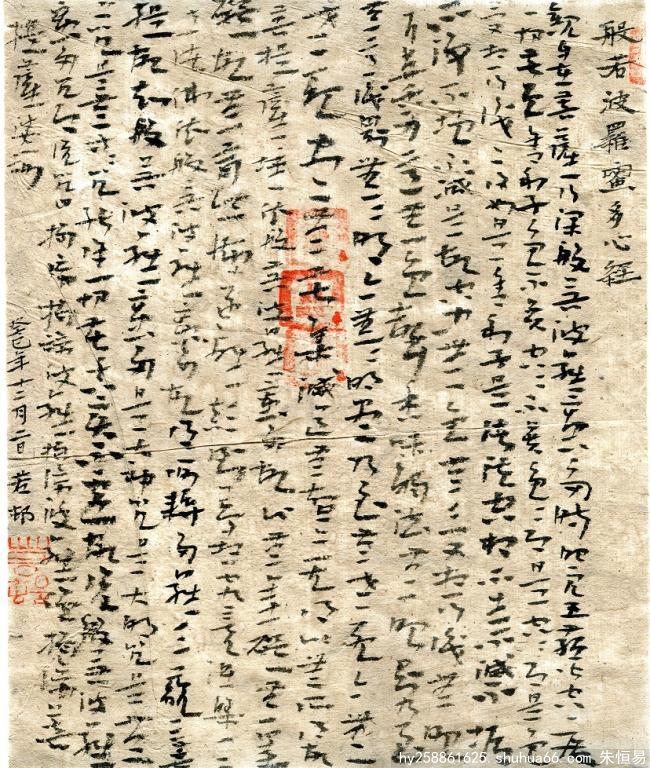 般若波羅蜜多心經
觀自在菩薩行深般若波羅蜜多時照見五蘊皆空度
一切苦厄舍利子色不異空空不異色色即是空空即是色
受想行識亦復如是舍利子是諸法空相不生不滅不垢
不淨不增不減是故空中無色無受想行識無眼
耳鼻舌身意無色聲香味觸法無眼界乃
至無意識界無無明亦無無明盡乃至無老死亦無
老死盡無苦集滅道無智亦無得以無所得故
菩提薩埵依般若波羅蜜多故心無罣礙無罣
礙故無有恐怖遠離顛倒夢想究竟涅槃三
世諸佛依般若波羅蜜多故得阿耨多羅三藐三菩
提故知般若波羅蜜多是大神咒是大明咒是無上
咒是無等等咒能除一切苦真實不虛故說般若波羅
蜜多咒即說咒曰揭諦揭諦波羅揭諦波羅僧揭諦菩
提薩婆訶
癸巳年十二月二日若邨
hy258861625 shuhua66.com 朱恒易